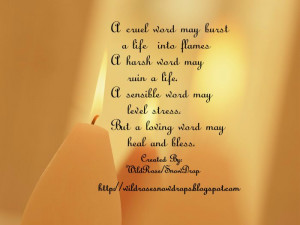 A cruel word may burst
a life into flames
A harsh word may
ruin a life.
A sensible word may
level stress.
But a loving word may
heal and bless.
Created By:
WildRose/SnowDrop
http://wildrosesnowdrops.blogspot.com